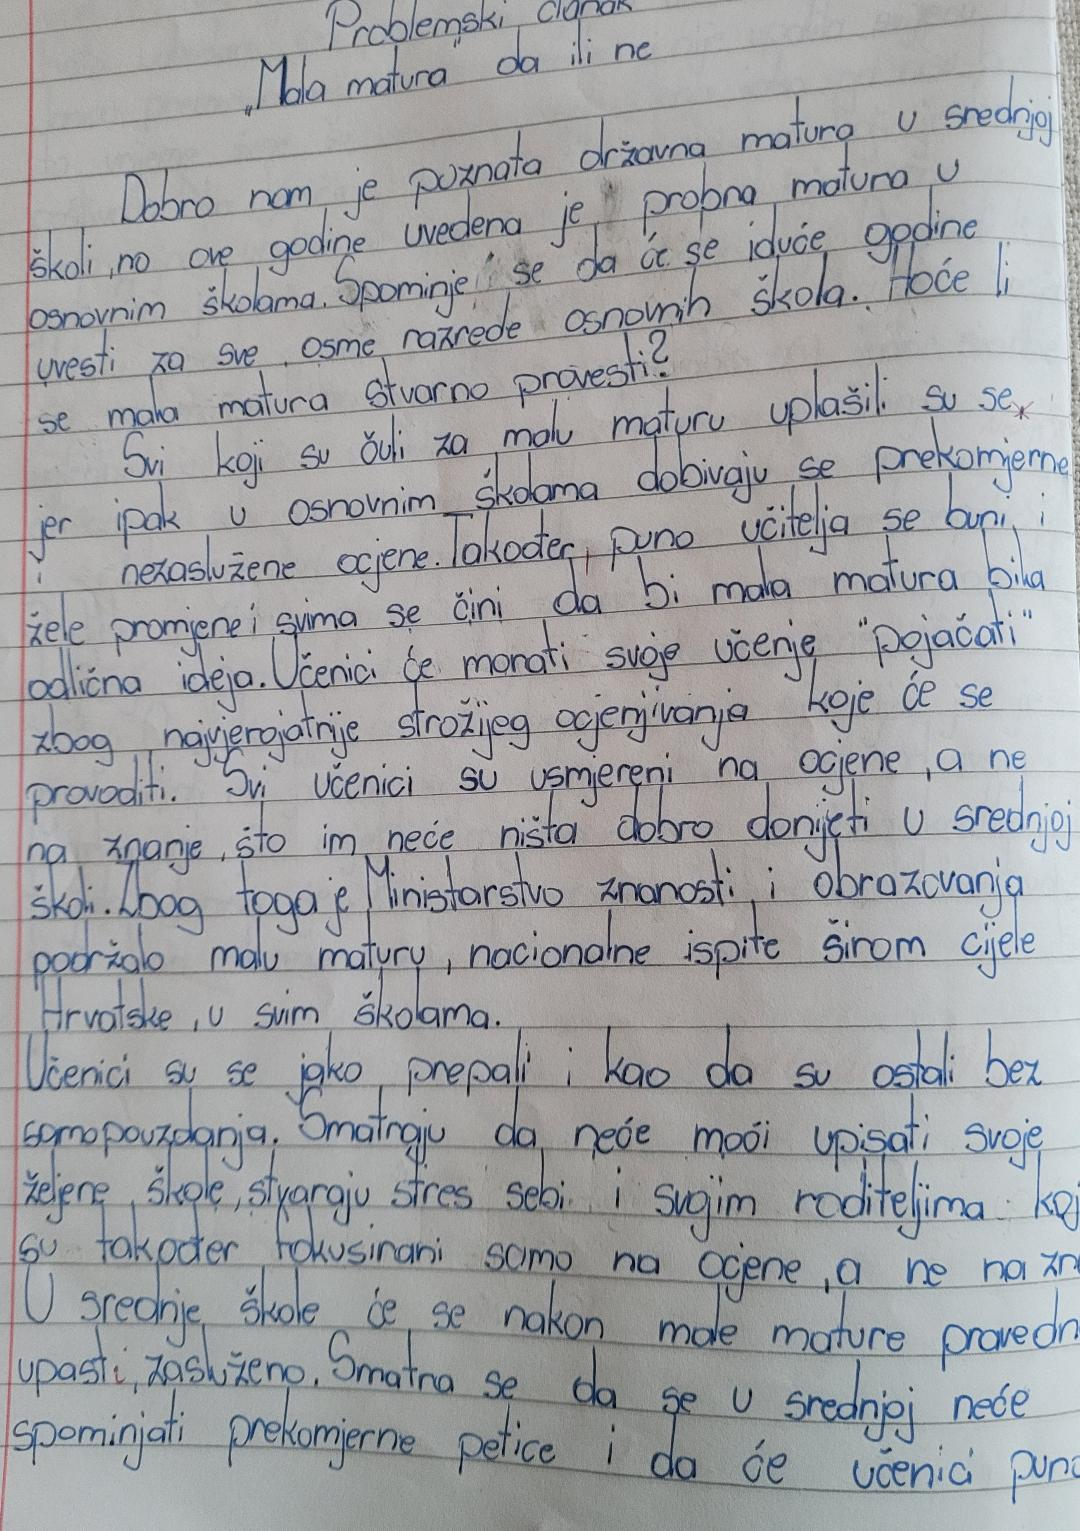 Problemski članak
„Mala matura" da ili ne
Dobro nam je poznata državna matura u srednjoj
školi, no ove godine uvedena je probna matura u
osnovnim školama. Spominje se da će se iduće godine
uvesti za sve osme razrede osnovnih škola. Hoće li
se mala matura stvarno provesti?
Svi koji su čuli za malu maturu uplašili su se,
jer ipak u osnovnim školama dobivaju se prekomjerne
i nezaslužene ocjene. Također, puno učitelja se buni i
žele promjene i svima se čini da bi mala matura bila
odlična ideja. Učenici će morati svoje učenje "pojačati"
zbog najvjerojatnije strožijeg ocjenjivanja koje će se
provoditi. Svi učenici su usmjereni na ocjene, a ne
na znanje, što im neće ništa dobro donijeti u srednjoj
školi. Zbog toga je Ministarstvo znanosti i obrazovanja
podržalo malu maturu, nacionalne ispite širom cijele
Hrvatske, u svim školama.
Učenici su se jako prepali i kao da su ostali bez
samopouzdanja. Smatraju da neće moći upisati svoje
željene škole, stvaraju stres sebi i svojim roditeljima koj
su također fokusirani samo na ocjene, a ne na zn
U srednje škole će se nakon male mature pravedn
upasti, zasluženo. Smatra se da se u srednjoj neće
spominjati prekomjerne petice i da će učenici puno